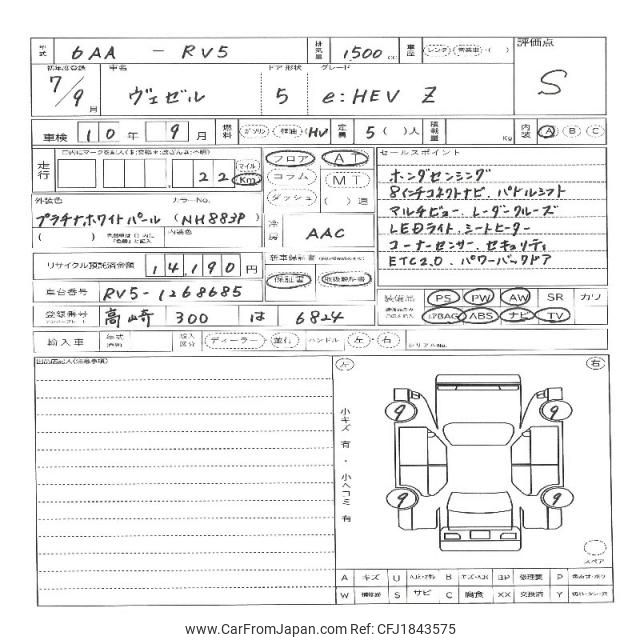 型式 6AA - RV5 排気量 1500 cc 車歴 レンタ・営業車・( ) 評価点
初年度登録 車名 ドア 形状 グレード
7/9 月 ヴェゼル 5 e:HEV Z S
車検 10 年 9 月 燃料 ガソリン・軽油・HV 定員 5 ( )人 積載量 Kg 内装 A B C
走行 22 マイル Km
フロア AT
コラム MT
ダッシュ ( ) 速
セールスポイント
ホンダセンシング
8インチコネクトナビ、パドルシフト
マルチビュー、レーダークルーズ
LEDライト、シートヒーター
コーナーセンサー、セキュリティ
ETC2.0、パワーバックドア
外装色 カラーNo.
プラチナホワイトパール (NH883P)
( ) 内装色
冷房 AAC
リサイクル預託済金額 14,190 円
新車保証書
保証書 取扱説明書
車台番号 RV5-1268685
装備品 PS PW AW SR カワ
登録番号 高崎 300 は 6824
AIRBAG ABS ナビ TV
輸入車 年式 輸入区分 ディーラー・並行 ハンドル 左・右 シリアルNo.
左 右
小キズ有・小ヘコミ有
9 9
9 9
スペア
A キズ U B BP 修理業 P
W S サビ C 腐食 XX 交換済 Y
www.CarFromJapan.com - CFJ1843575